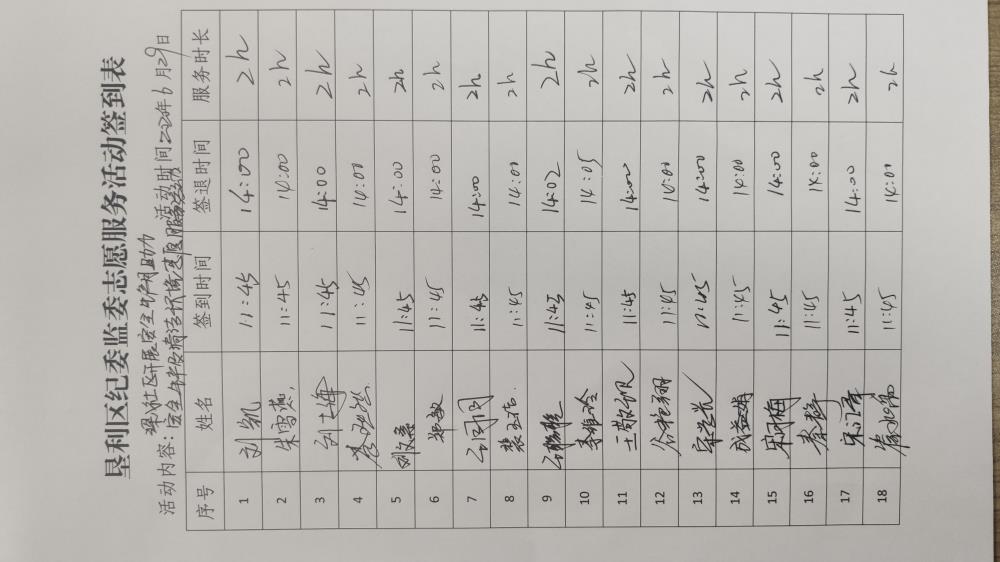 垦利区纪委监委志愿服务活动签到表
活动内容: 社区开展安全生产月助力 活动时间2022年6月29日
安全生产及清洁环境志愿服务活动
序号 姓名 签到时间 签退时间 服务时长
1 刘凯 11:45 14:00 2h
2 朱雪燕 11:45 14:00 2h
3 刘海 11:45 14:00 2h
4 11:45 14:00 2h
5 刘文 11:45 14:00 2h
6 郑敏 11:45 14:00 2h
7 石冈冈 11:45 14:00 2h
8 裴玉洁 11:45 14:01 2h
9 11:43 14:02 2h
10 李维玲 11:45 14:05 2h
11 11:45 14:00 2h
12 11:45 14:01 2h
13 11:45 14:00 2h
14 成益娟 11:45 14:00 2h
15 宋明梅 11:45 14:00 2h
16 秦静 11:45 14:00 2h
17 宋 11:45 14:00 2h
18 11:45 14:01 2h